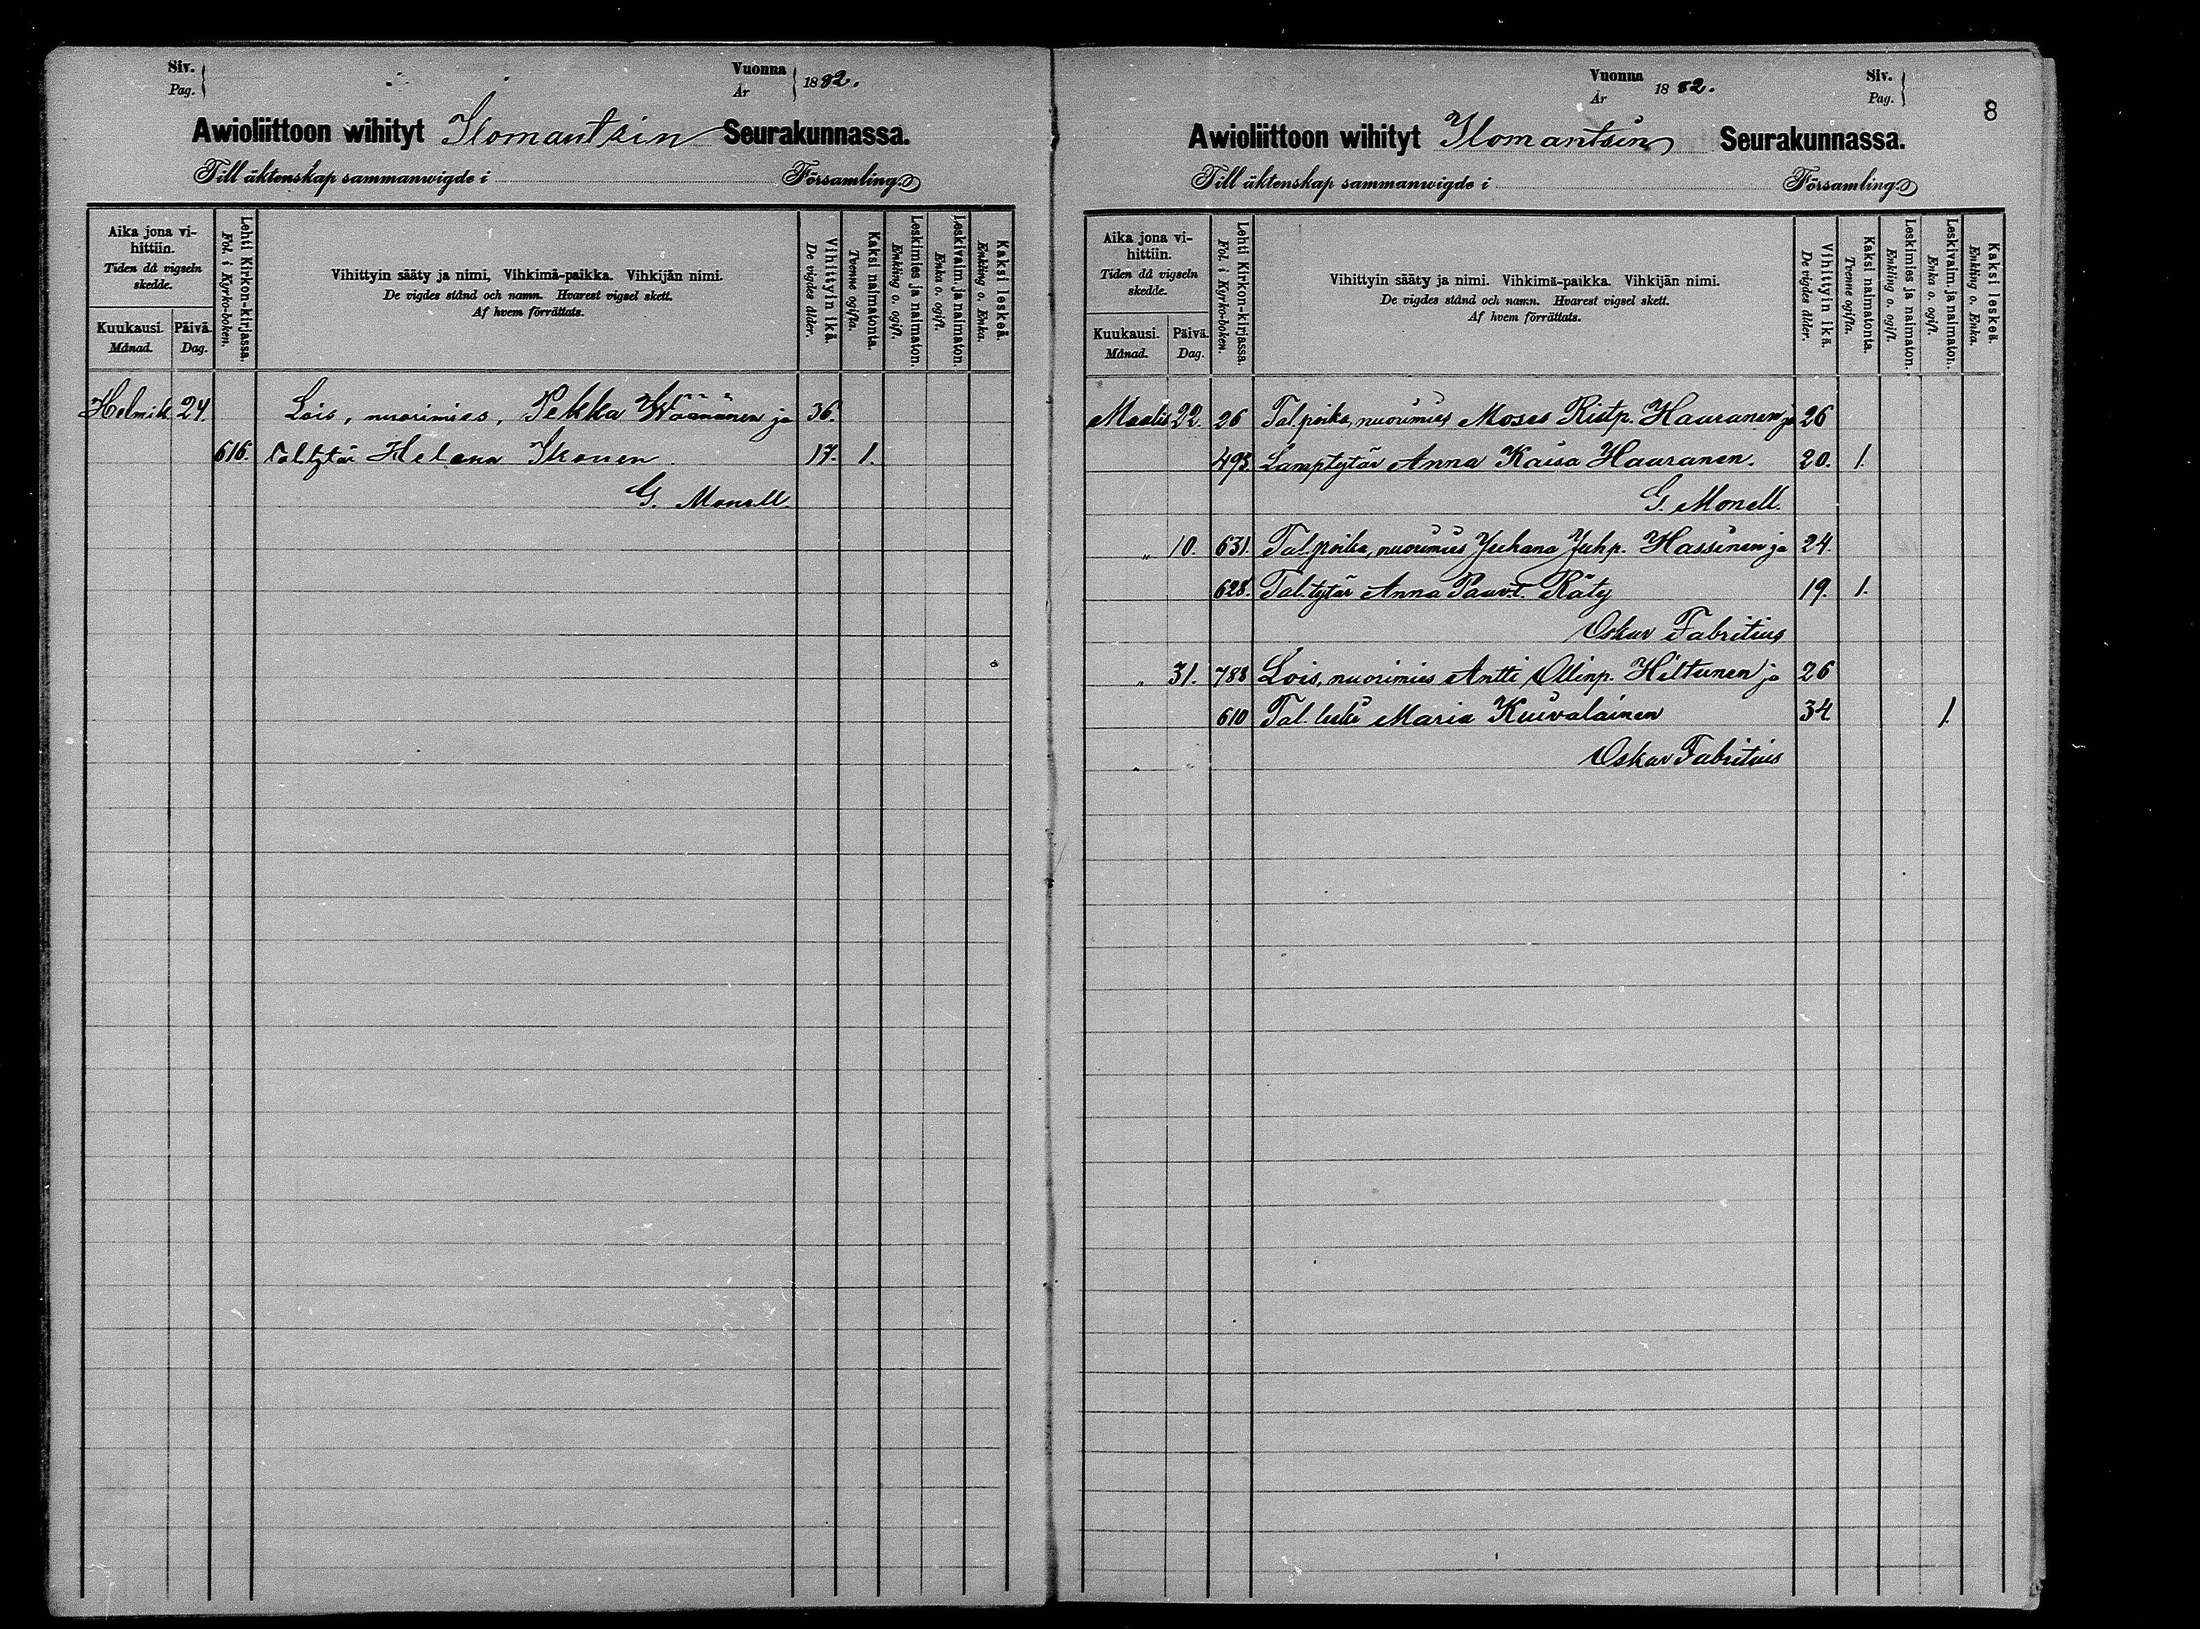 Siv.
Pag.
Vuonna
År
1882.
Awioliittoon wihityt Ilomantsin Seurakunnassa.
Till äktenskap sammanwigde i Församling.
Aika jona vi-
hittiin.
Tiden då vigseln
skedde.
Kuukausi.
Månad.
Päivä.
Dag.
Lehti Kirkon-kirjassa.
Fol. i Kyrko-boken.
Vihittyin sääty ja nimi, Vihkimä-paikka. Vihkijän nimi.
De vigdes stånd och namn. Hvarest vigsel skett.
Af hvem förrättats.
Vihittyin ikä.
De vigdes ålder.
Kaksi naimatonta.
Tvenne ogifta.
Leskimies ja naimaton.
Enkling o. ogift.
Leskivaim. ja naimaton.
Enka o. ogift.
Kaksi leskeä.
Enkling o. Enka.
Helmik. 24. Lois, nuorimies, Pekka Wäänänen ja 36.
616. Taltytär Helena Ikonen. 17. 1.
G. Monell.
Vuonna
År
1882.
Siv.
Pag.
8
Awioliittoon wihityt Ilomantsin Seurakunnassa.
Till äktenskap sammanwigde i Församling.
Aika jona vi-
hittiin.
Tiden då vigseln
skedde.
Kuukausi.
Månad.
Päivä.
Dag.
Lehti Kirkon-kirjassa.
Fol. i Kyrko-boken.
Vihittyin sääty ja nimi. Vihkimä-paikka. Vihkijän nimi.
De vigdes stånd och namn. Hvarest vigsel skett.
Af hvem förrättats.
Vihittyin ikä.
De vigdes ålder.
Kaksi naimatonta.
Tvenne ogifta.
Leskimies ja naimaton.
Enkling o. ogift.
Leskivaim. ja naimaton.
Enka o. ogift.
Kaksi leskeä.
Enkling o. Enka.
Maalis 22. 26 Tal. poika, nuorimies Moses Ristp. Hauranen ja 26
493. Lamptytär Anna Kaisa Hauranen. 20. 1.
G. Monell.
„ 10. 631. Tal. poika, nuorimies Juhana Juhp. Hassinen ja 24.
628. Tal. tytär Anna Paavt. Räty 19. 1.
Oskar Fabritius
„ 31. 788 Lois, nuorimies Antti Ollinp. Hiltunen ja 26
610 Tal. leski Maria Kuivalainen 34 1.
Oskar Fabritius